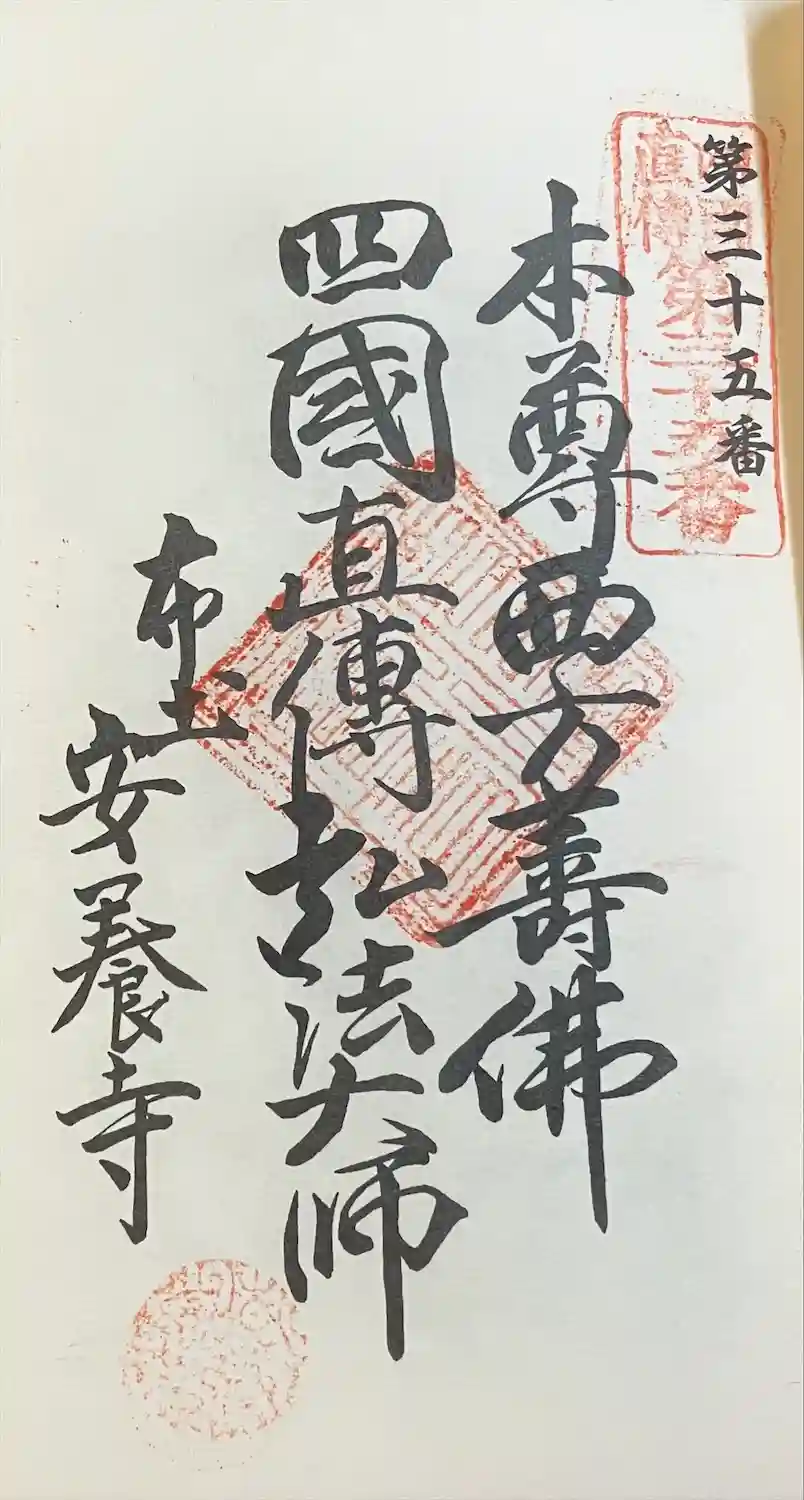 第三十五番
第三十五番
本尊西方壽佛
四國直傳弘法大師
布土
安養寺